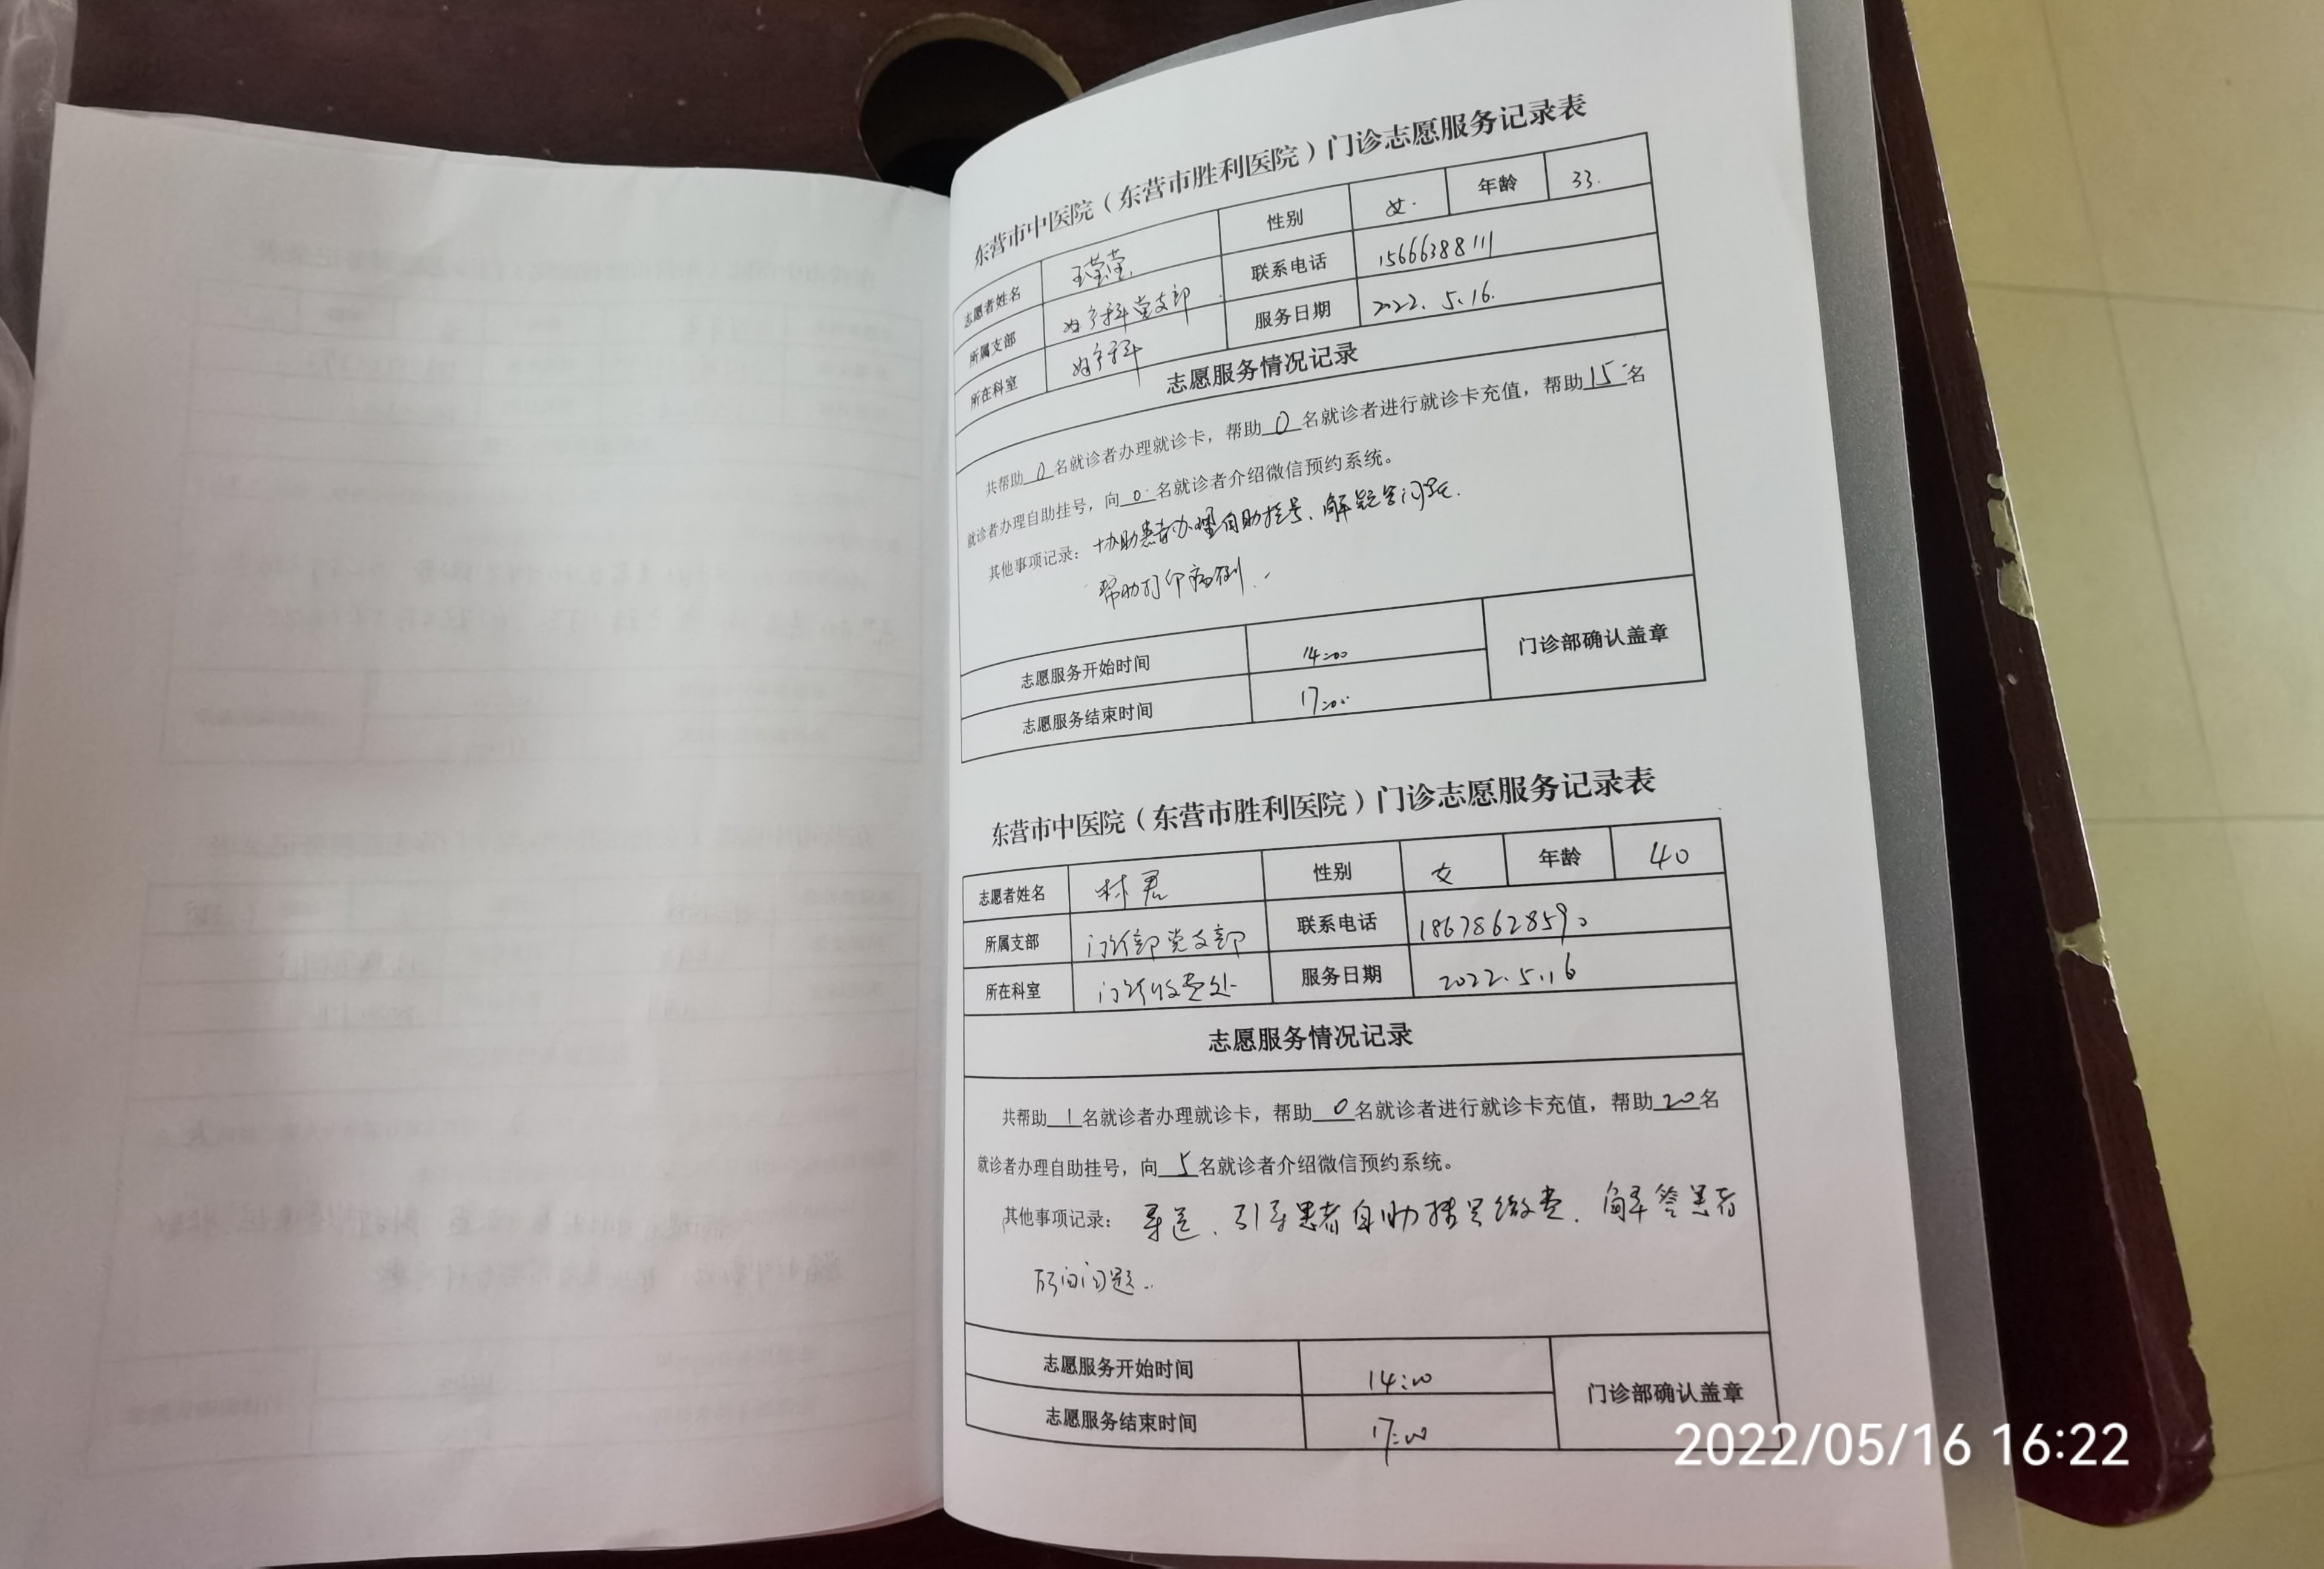 东营市中医院（东营市胜利医院）门诊志愿服务记录表
志愿者姓名 王莹莹 性别 女 年龄 33
所属支部 妇产科党支部 联系电话 15666388111
所在科室 妇产科 服务日期 2022.5.16.
志愿服务情况记录
共帮助0名就诊者办理就诊卡，帮助0名就诊者进行就诊卡充值，帮助15名
就诊者办理自助挂号，向0名就诊者介绍微信预约系统。
其他事项记录：协助患者办理自助挂号、解疑答问等.
帮助打印病例.
志愿服务开始时间 14:00 门诊部确认盖章
志愿服务结束时间 17:00
东营市中医院（东营市胜利医院）门诊志愿服务记录表
志愿者姓名 林君 性别 女 年龄 40
所属支部 门诊部党支部 联系电话 18678628590
所在科室 门诊收费处 服务日期 2022.5.16
志愿服务情况记录
共帮助1名就诊者办理就诊卡，帮助0名就诊者进行就诊卡充值，帮助20名
就诊者办理自助挂号，向5名就诊者介绍微信预约系统。
其他事项记录：导医、引导患者自助挂号缴费、解答患者
所问问题.
志愿服务开始时间 14:00 门诊部确认盖章
志愿服务结束时间 17:00
2022/05/16 16:22